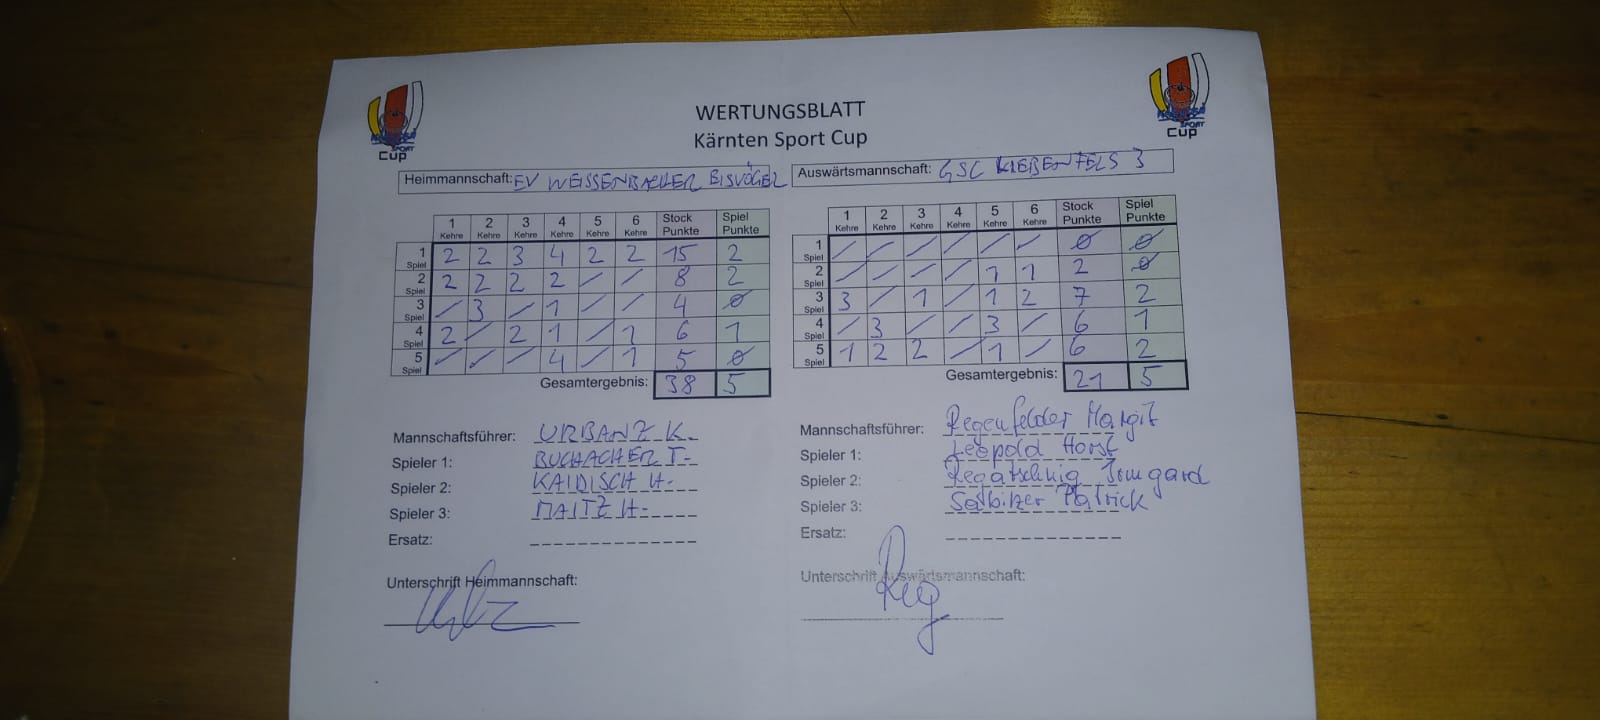 WERTUNGSBLATT
Kärnten Sport Cup
Cup
SPORT
Cup
Heimmannschaft: EV WEISSENBACHER EISVÖGEL
Auswärtsmannschaft: GSC LIEBENFELS 3
1 Kehre 2 Kehre 3 Kehre 4 Kehre 5 Kehre 6 Kehre Stock Punkte Spiel Punkte
1 Spiel 2 2 3 4 2 2 15 2
2 Spiel 2 2 2 2 / / 8 2
3 Spiel / 3 / 1 / / 4 Ø
4 Spiel 2 / 2 1 / 1 6 1
5 Spiel / / / 4 / 1 5 Ø
Gesamtergebnis: 38 5
1 Kehre 2 Kehre 3 Kehre 4 Kehre 5 Kehre 6 Kehre Stock Punkte Spiel Punkte
1 Spiel / / / / / / Ø Ø
2 Spiel / / / / 1 1 2 Ø
3 Spiel 3 / 1 / 1 2 7 2
4 Spiel / 3 / / 3 / 6 1
5 Spiel 1 2 2 / 1 / 6 2
Gesamtergebnis: 21 5
Mannschaftsführer: URBANZ K.
Spieler 1: BUCHACHER T.
Spieler 2: KAIDISCH H.
Spieler 3: MAITZ H.
Ersatz:
Unterschrift Heimmannschaft:
Mannschaftsführer: Regenfelder Margit
Spieler 1: Leopold Horst
Spieler 2: Regatschnig Irmgard
Spieler 3: Patrick
Ersatz:
Unterschrift Auswärtsmannschaft:
Reg